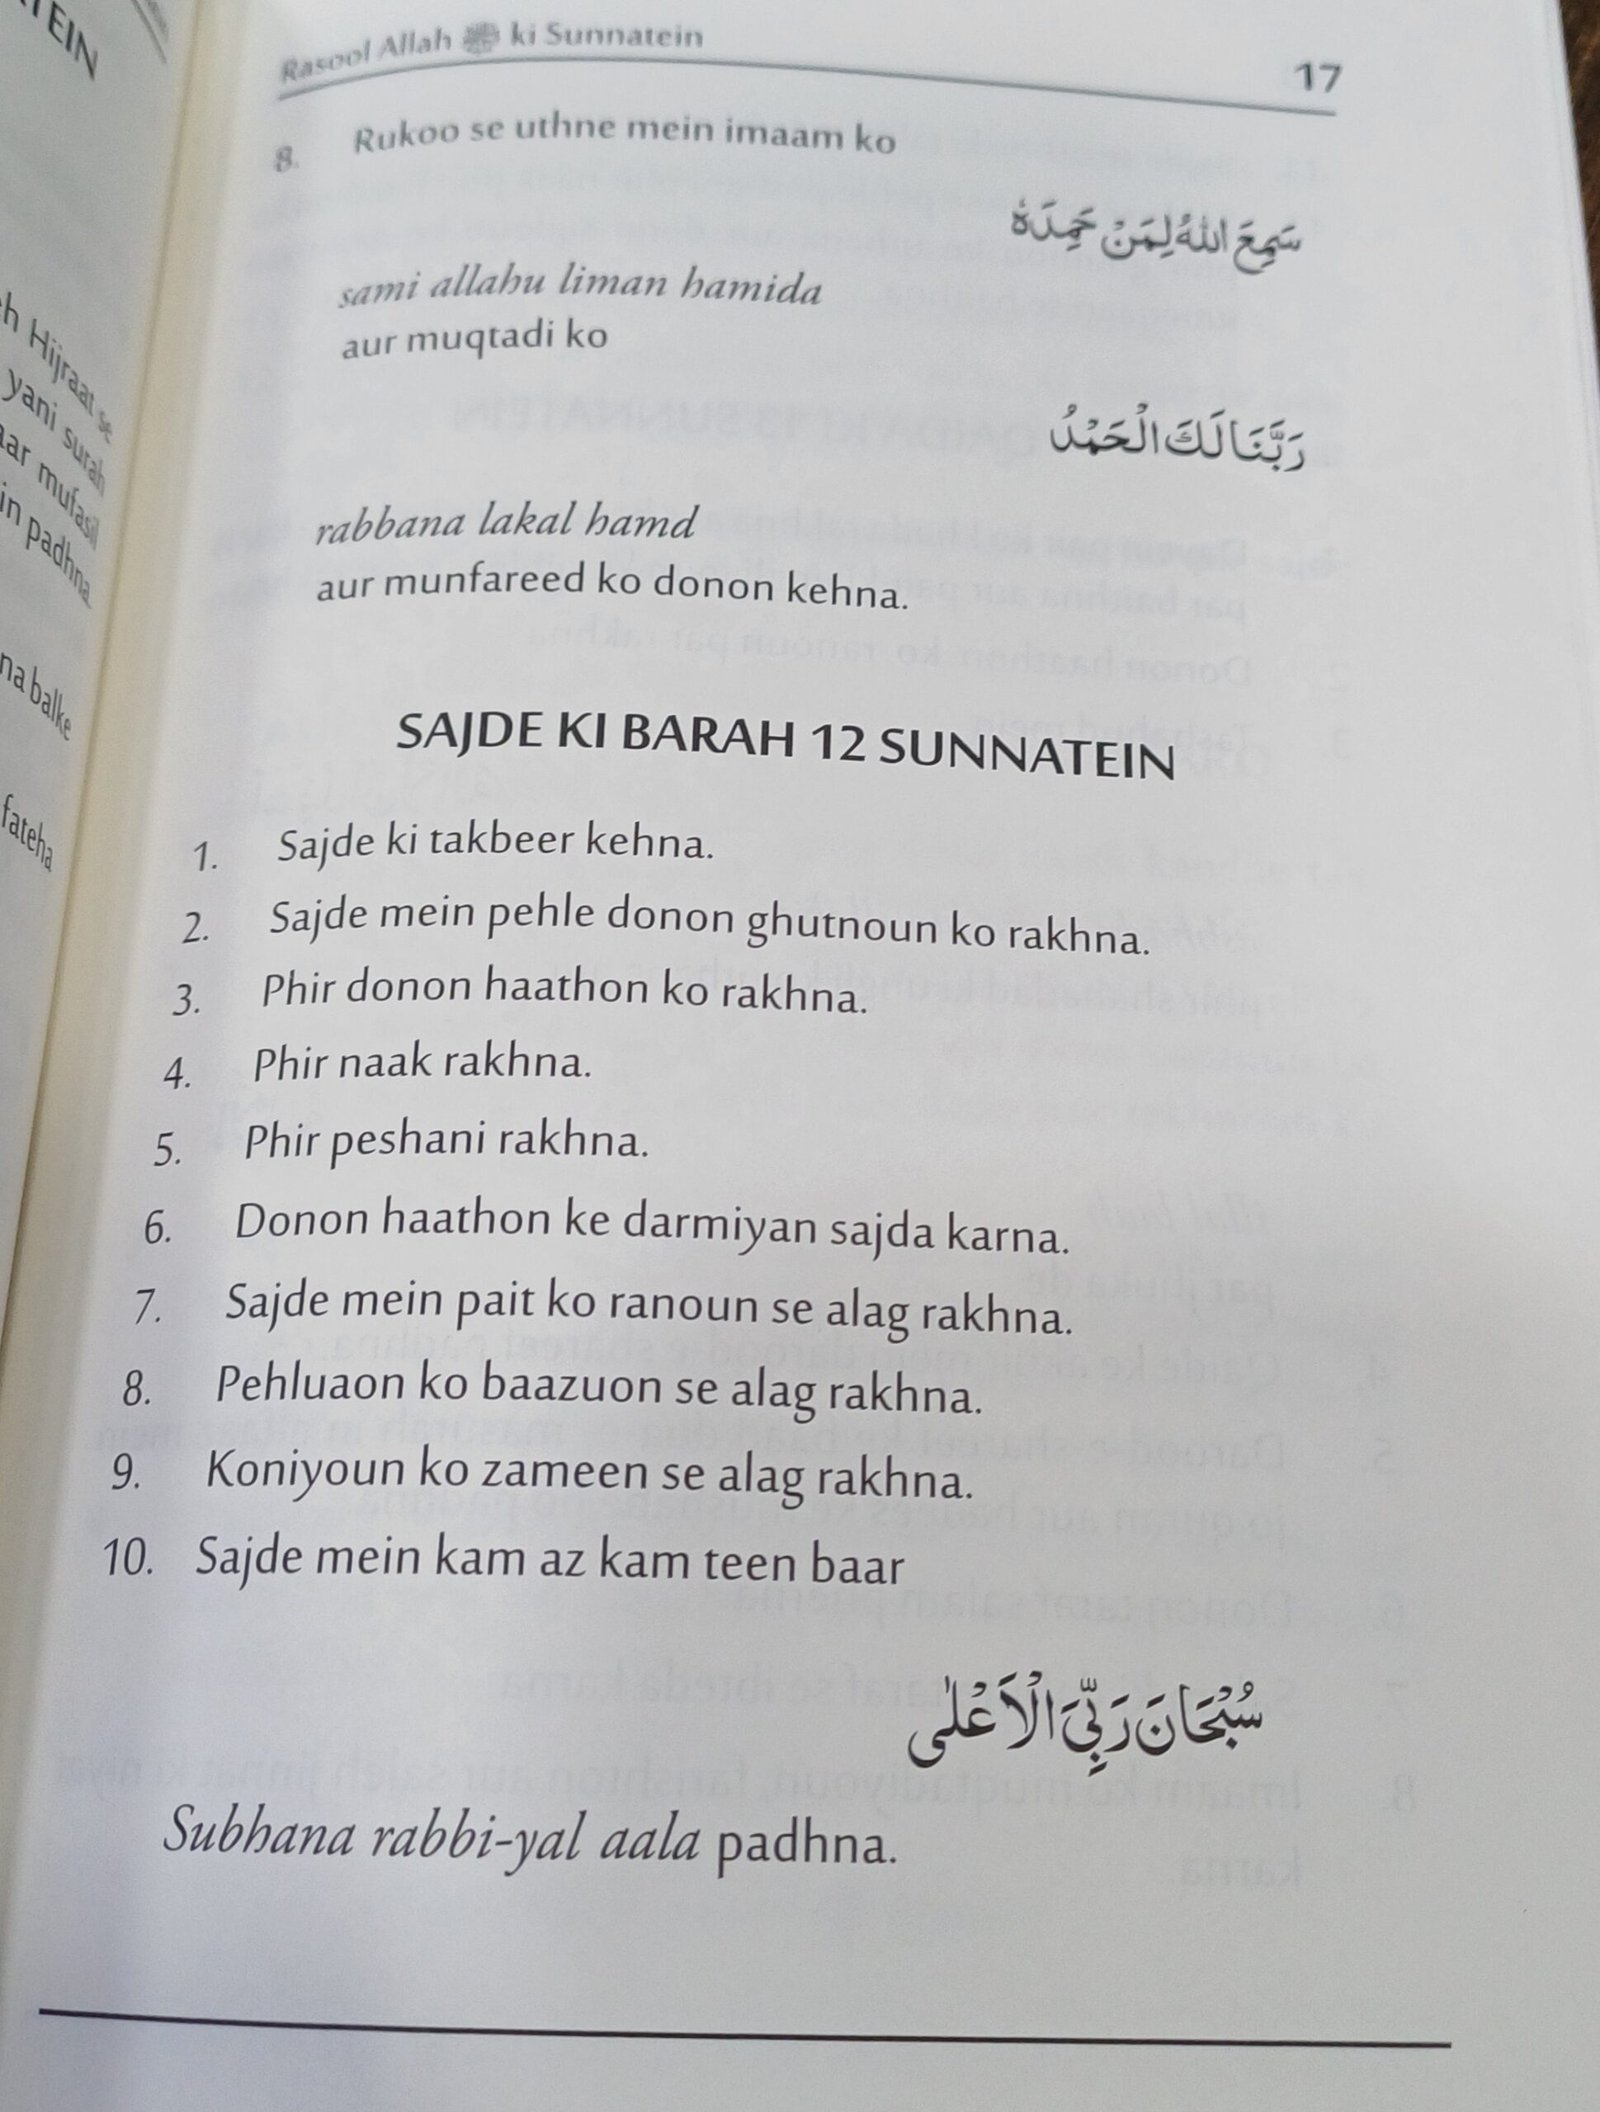 TEIN
h Hijraat se
yani surah
aar mufasil
in padhna.
na balke
fateha
Rasool Allah ﷺ ki Sunnatein
17
8. Rukoo se uthne mein imaam ko
سَمِعَ اللّٰهُ لِمَنْ حَمِدَهٗ
sami allahu liman hamida
aur muqtadi ko
رَبَّنَا لَكَ الْحَمْدُ
rabbana lakal hamd
aur munfareed ko donon kehna.
SAJDE KI BARAH 12 SUNNATEIN
1. Sajde ki takbeer kehna.
2. Sajde mein pehle donon ghutnoun ko rakhna.
3. Phir donon haathon ko rakhna.
4. Phir naak rakhna.
5. Phir peshani rakhna.
6. Donon haathon ke darmiyan sajda karna.
7. Sajde mein pait ko ranoun se alag rakhna.
8. Pehluaon ko baazuon se alag rakhna.
9. Koniyoun ko zameen se alag rakhna.
10. Sajde mein kam az kam teen baar
سُبْحَانَ رَبِّيَ الْاَعْلٰى
Subhana rabbi-yal aala padhna.